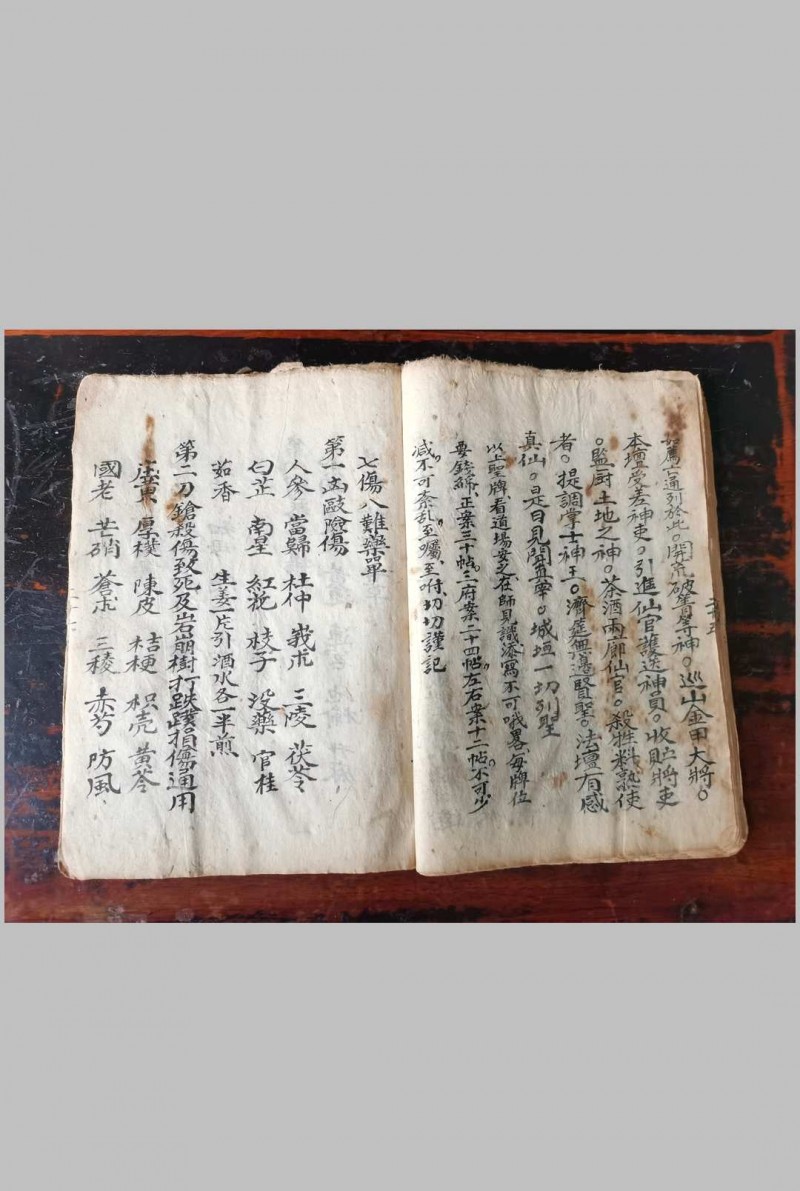 薦六通列於此。開荒破罾等神。巡山金甲大將。
本壇受差神吏。引進仙官護送神員。收貼將吏
。監厨土地之神。茶酒兩廊仙官。殺牲料熟使
者。提調掌士神王。濟筵無邊賢聖。法壇有感
真仙。是日見聞直華。城垣一切列聖
以上聖牌看道場安之在師見識添寫不可哦畧每牌位
要錢綿正案三十帖二府案二十四帖左右案十二帖不可少
减不可紊乱至囑至咐切切謹記
七傷八難藥單
第一凶毆險傷
人參 當歸 杜仲 莪朮 三陵 茯苓
白芷 南星 紅花 枝子 没藥 官桂
茹香 生姜一片引酒水各一半煎
第二刀鎗殺傷致死及岩崩樹打跌蹼損傷通用
厚樸 陳皮 桔梗 枳壳 黄苓
國老 芒硝 蒼朮 三稜 赤芍 防風